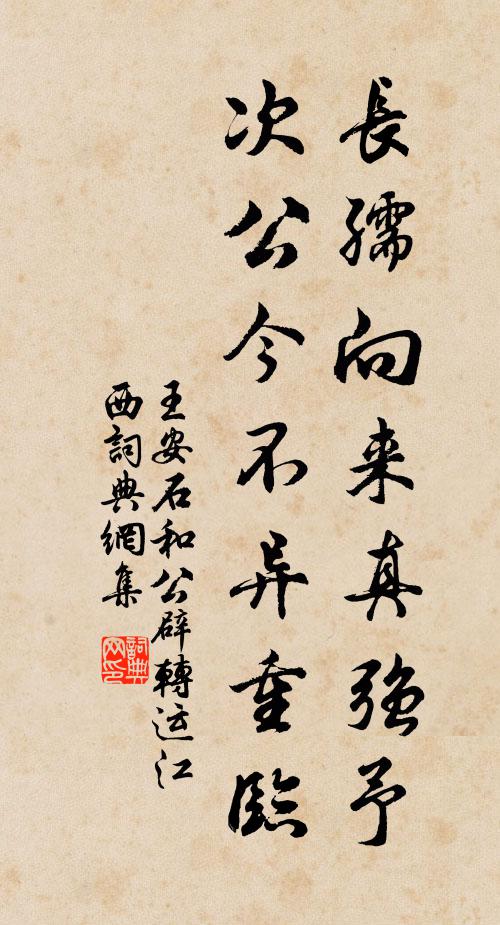 長孺向来真強予
次公今不异重臨
王安石和公辟轉运江
西詞典網集
詞典
网印